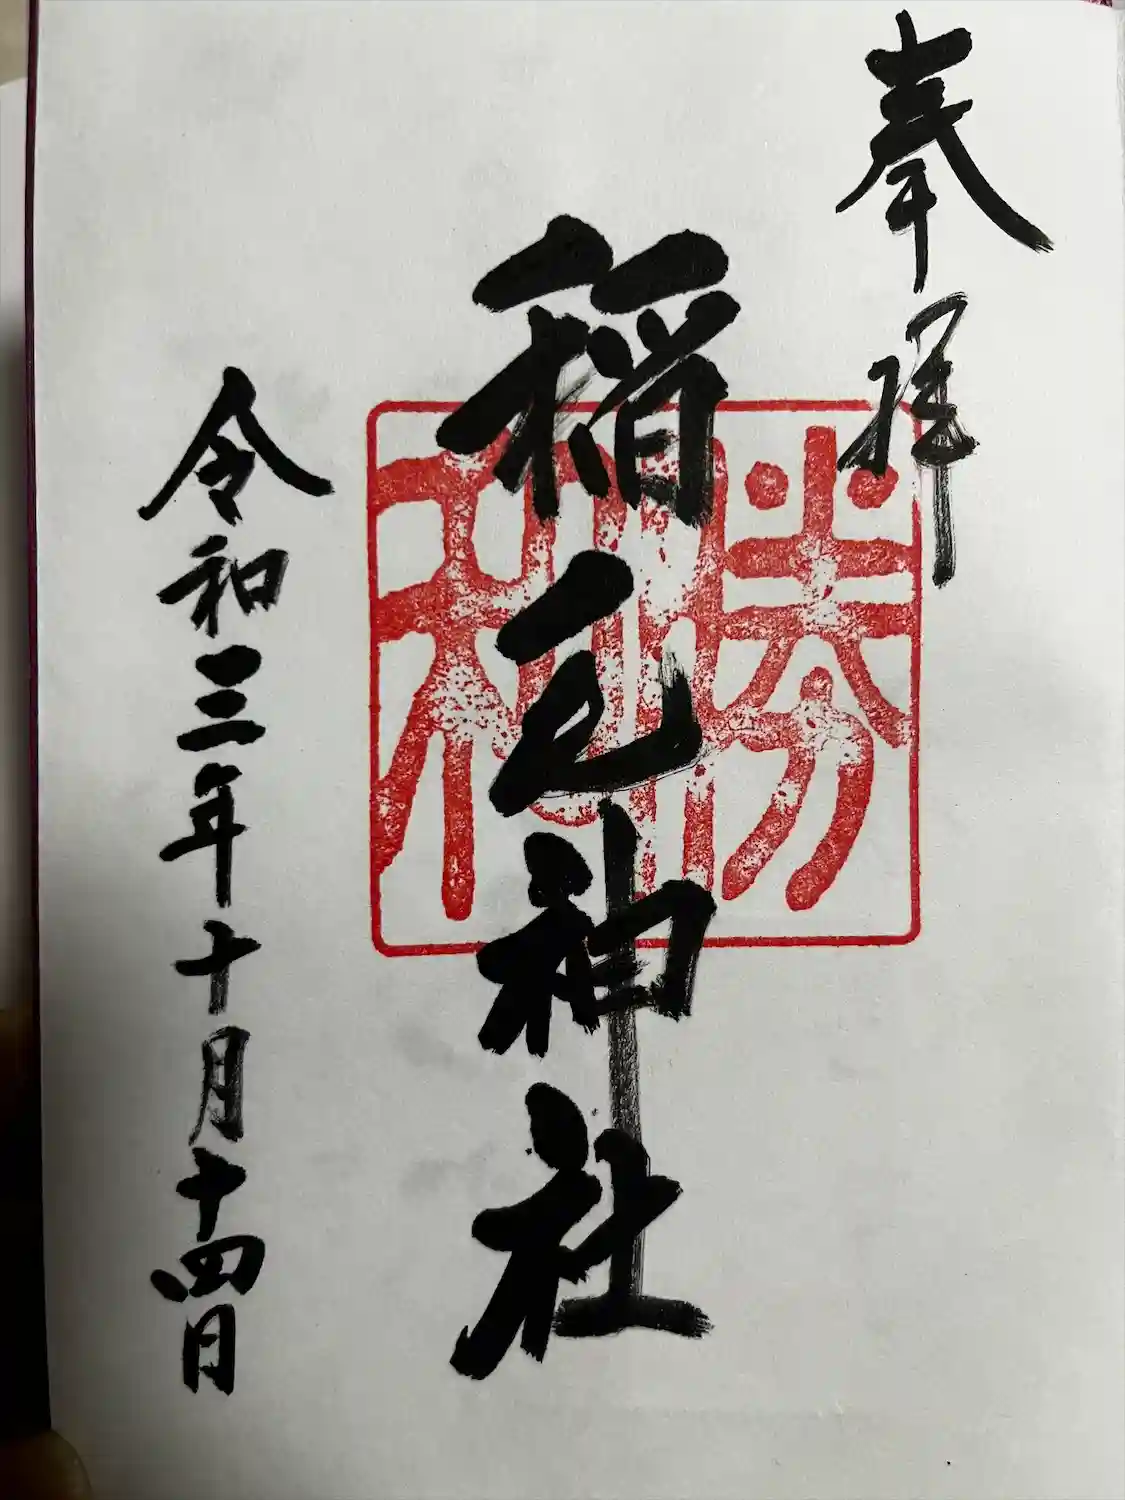 奉拝
稲毛神社
勝
令和三年十月十四日